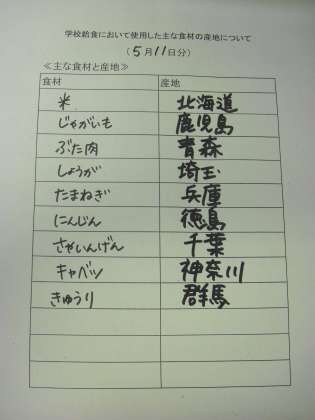 学校給食において使用した主な食材の産地について
(5月11日分)
≪主な食材と産地≫
食材 産地
米 北海道
じゃがいも 鹿児島
ぶた肉 青森
しょうが 埼玉
たまねぎ 兵庫
にんじん 徳島
さやいんげん 千葉
キャベツ 神奈川
きゅうり 群馬